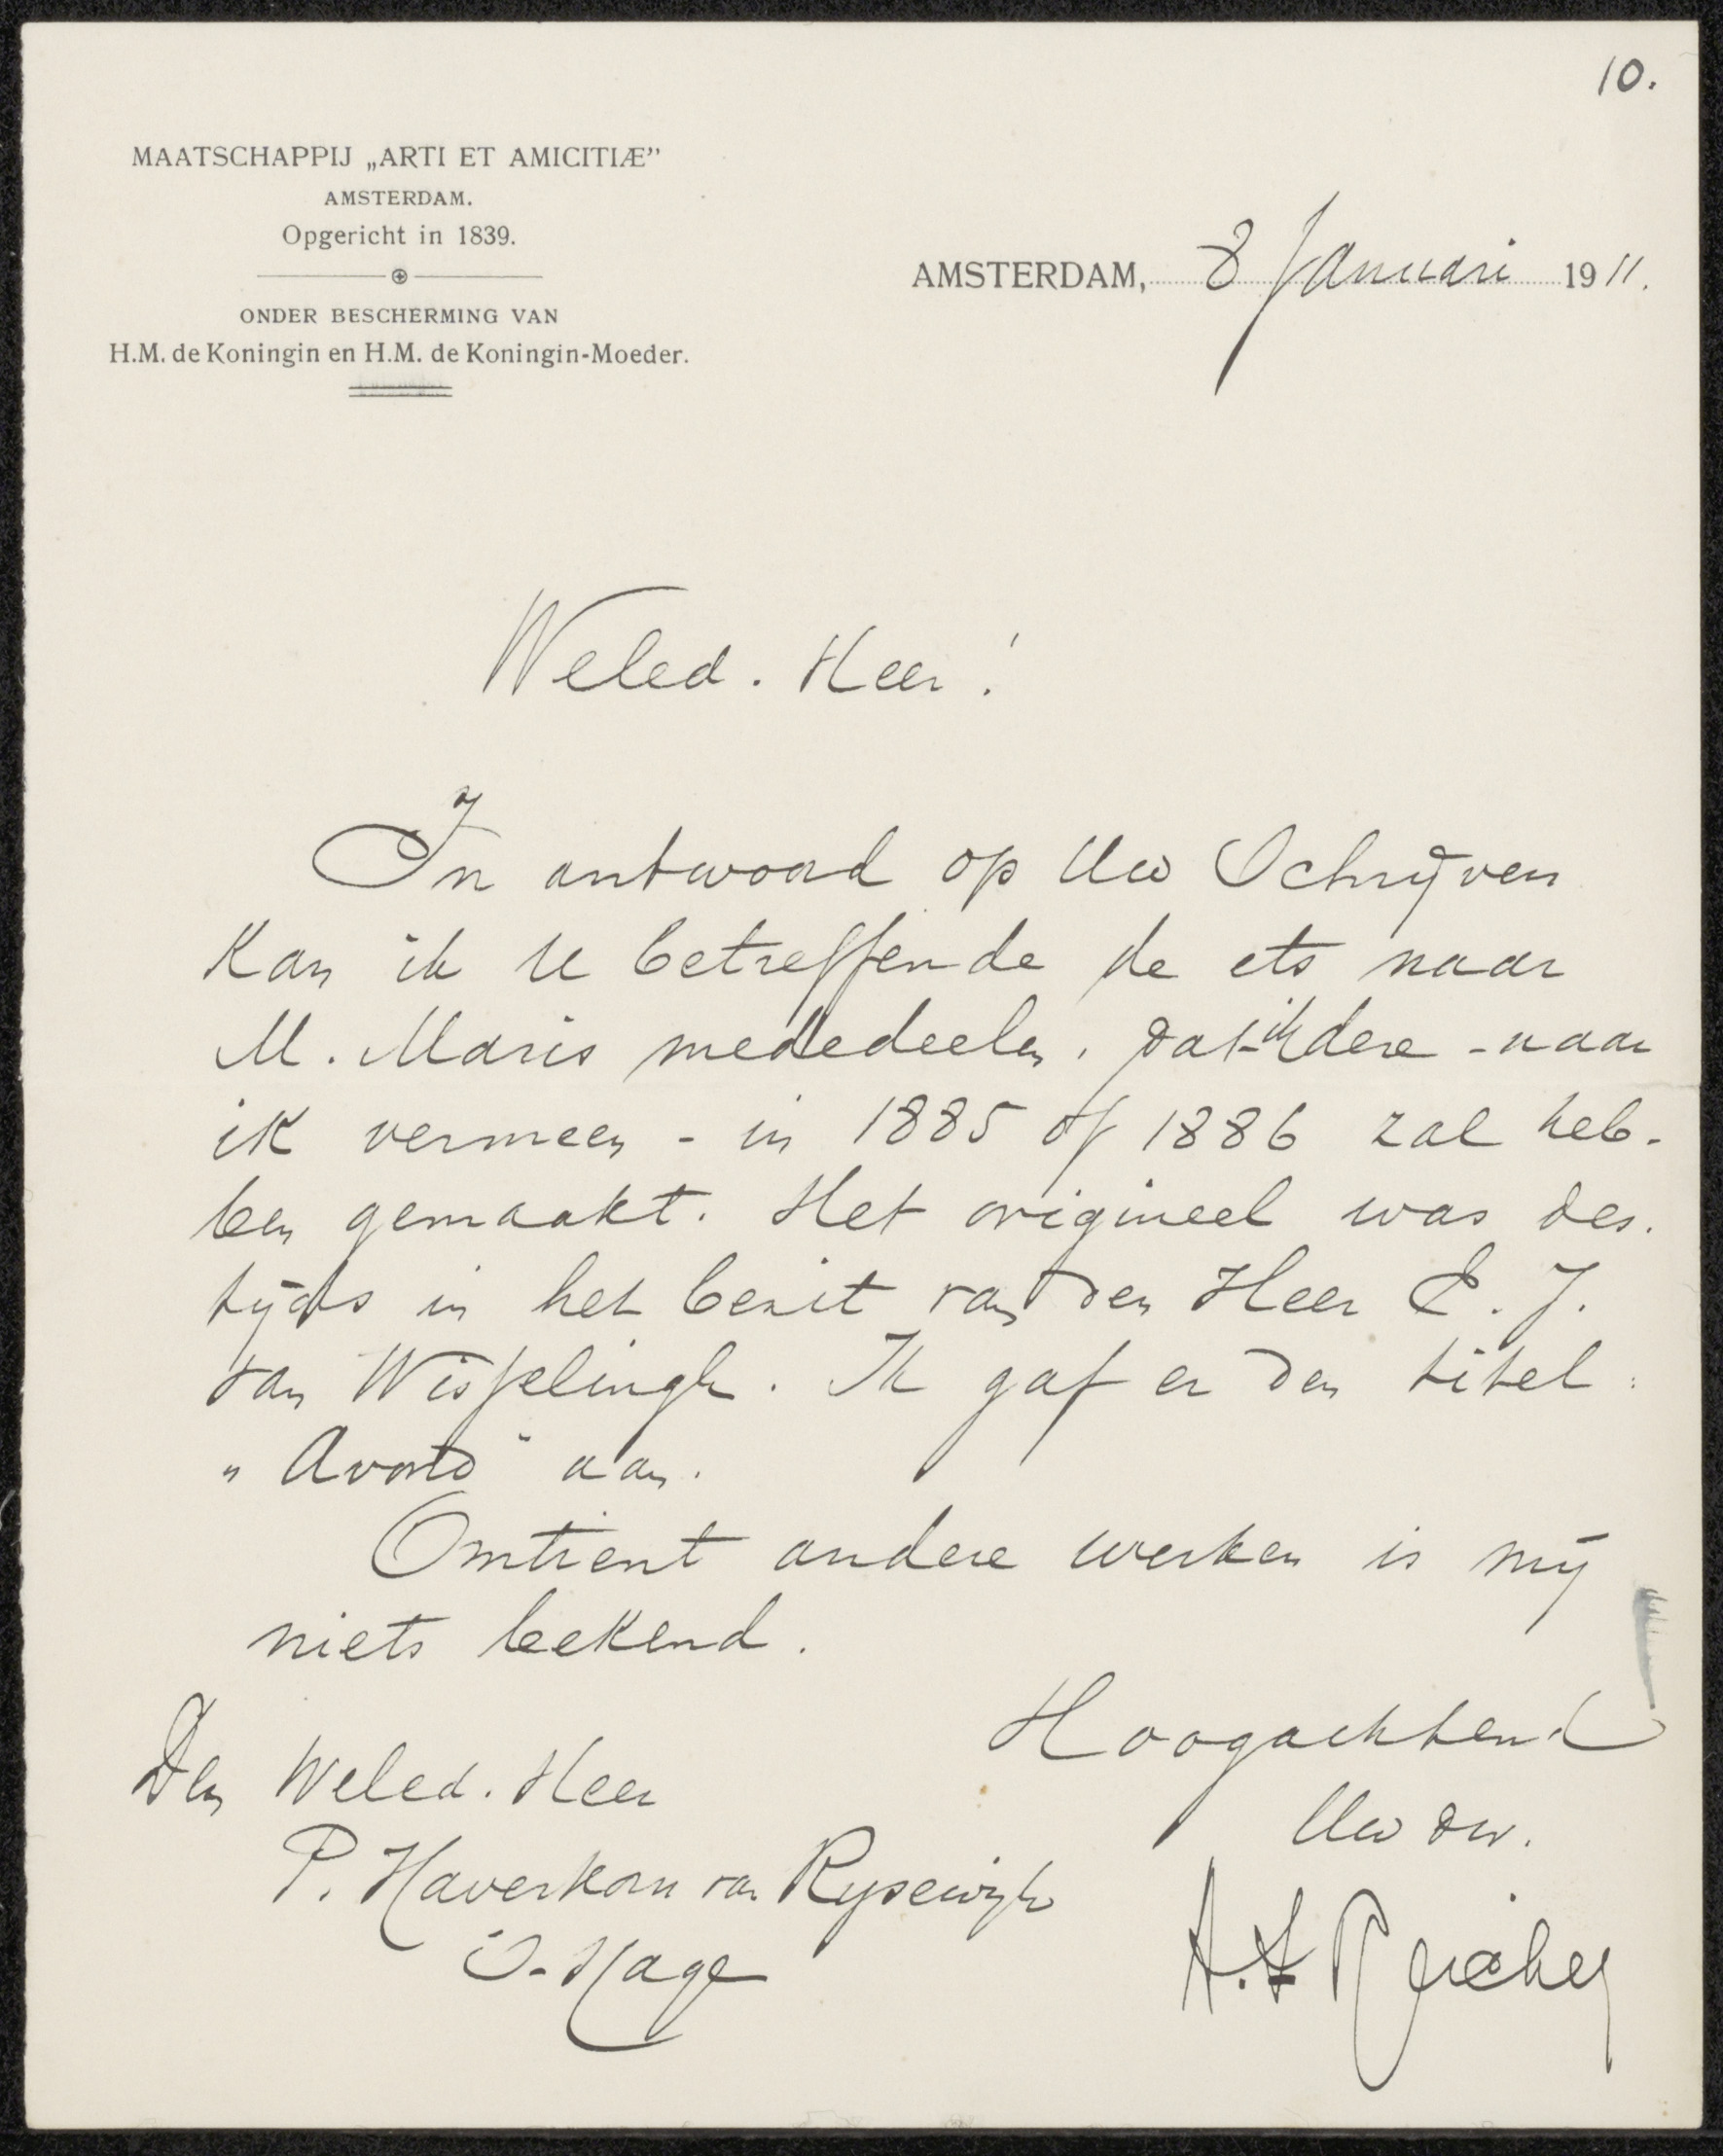 10.
MAATSCHAPPIJ „ARTI ET AMICITIÆ”
AMSTERDAM.
Opgericht in 1839.
ONDER BESCHERMING VAN
H.M. de Koningin en H.M. de Koningin-Moeder.
AMSTERDAM, 8 Januari 1911.
Weled. Heer!
In antwoord op Uw Schrijven
kan ik U betreffende de ets naar
M. Maris mededeelen, dat ik deze - naar
ik vermeen - in 1885 of 1886 zal heb-
ben gemaakt. Het origineel was des-
tijds in het bezit van den Heer E. J.
van Wisselingh. Ik gaf er den titel:
„Avond" aan.
Omtrent andere werken is mij
niets bekend.
Hoogachtend
Uw dw.
Den Weled. Heer
P. Haverkorn van Rijsewijk
's-Hage